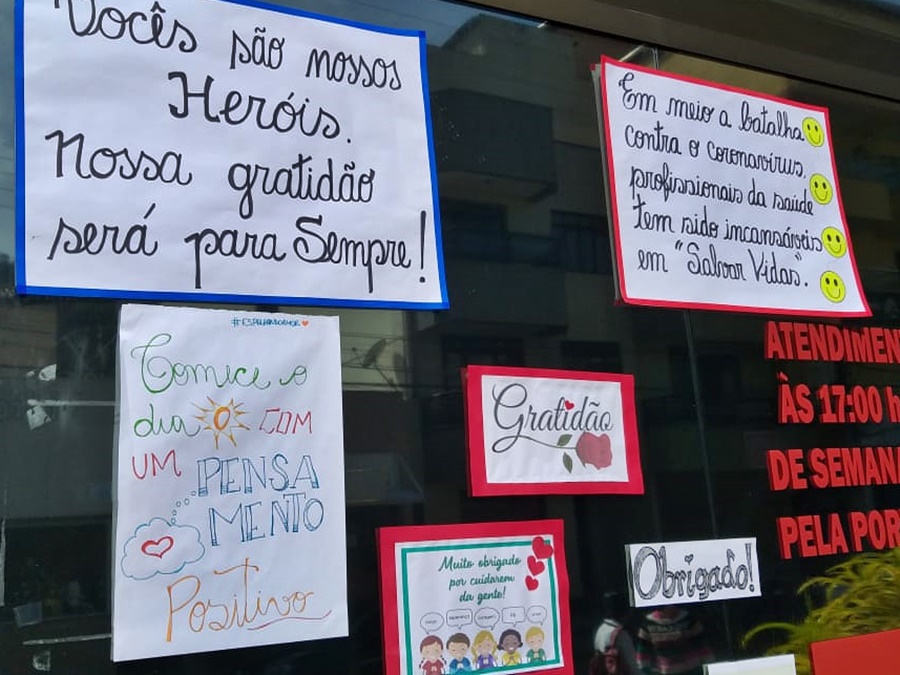 Vocês são nossos
Heróis.
Nossa gratidão
será para Sempre!
Em meio a batalha
contra o coronavírus,
profissionais da saúde
tem sido incansáveis
em "Salvar Vidas".
Comece o
dia COM
UM PENSA
MENTO
Positivo
Gratidão
Muito obrigado
por cuidarem
da gente!
Obrigado!
ATENDIMEN
ÀS 17:00 h
DE SEMANA
PELA POR